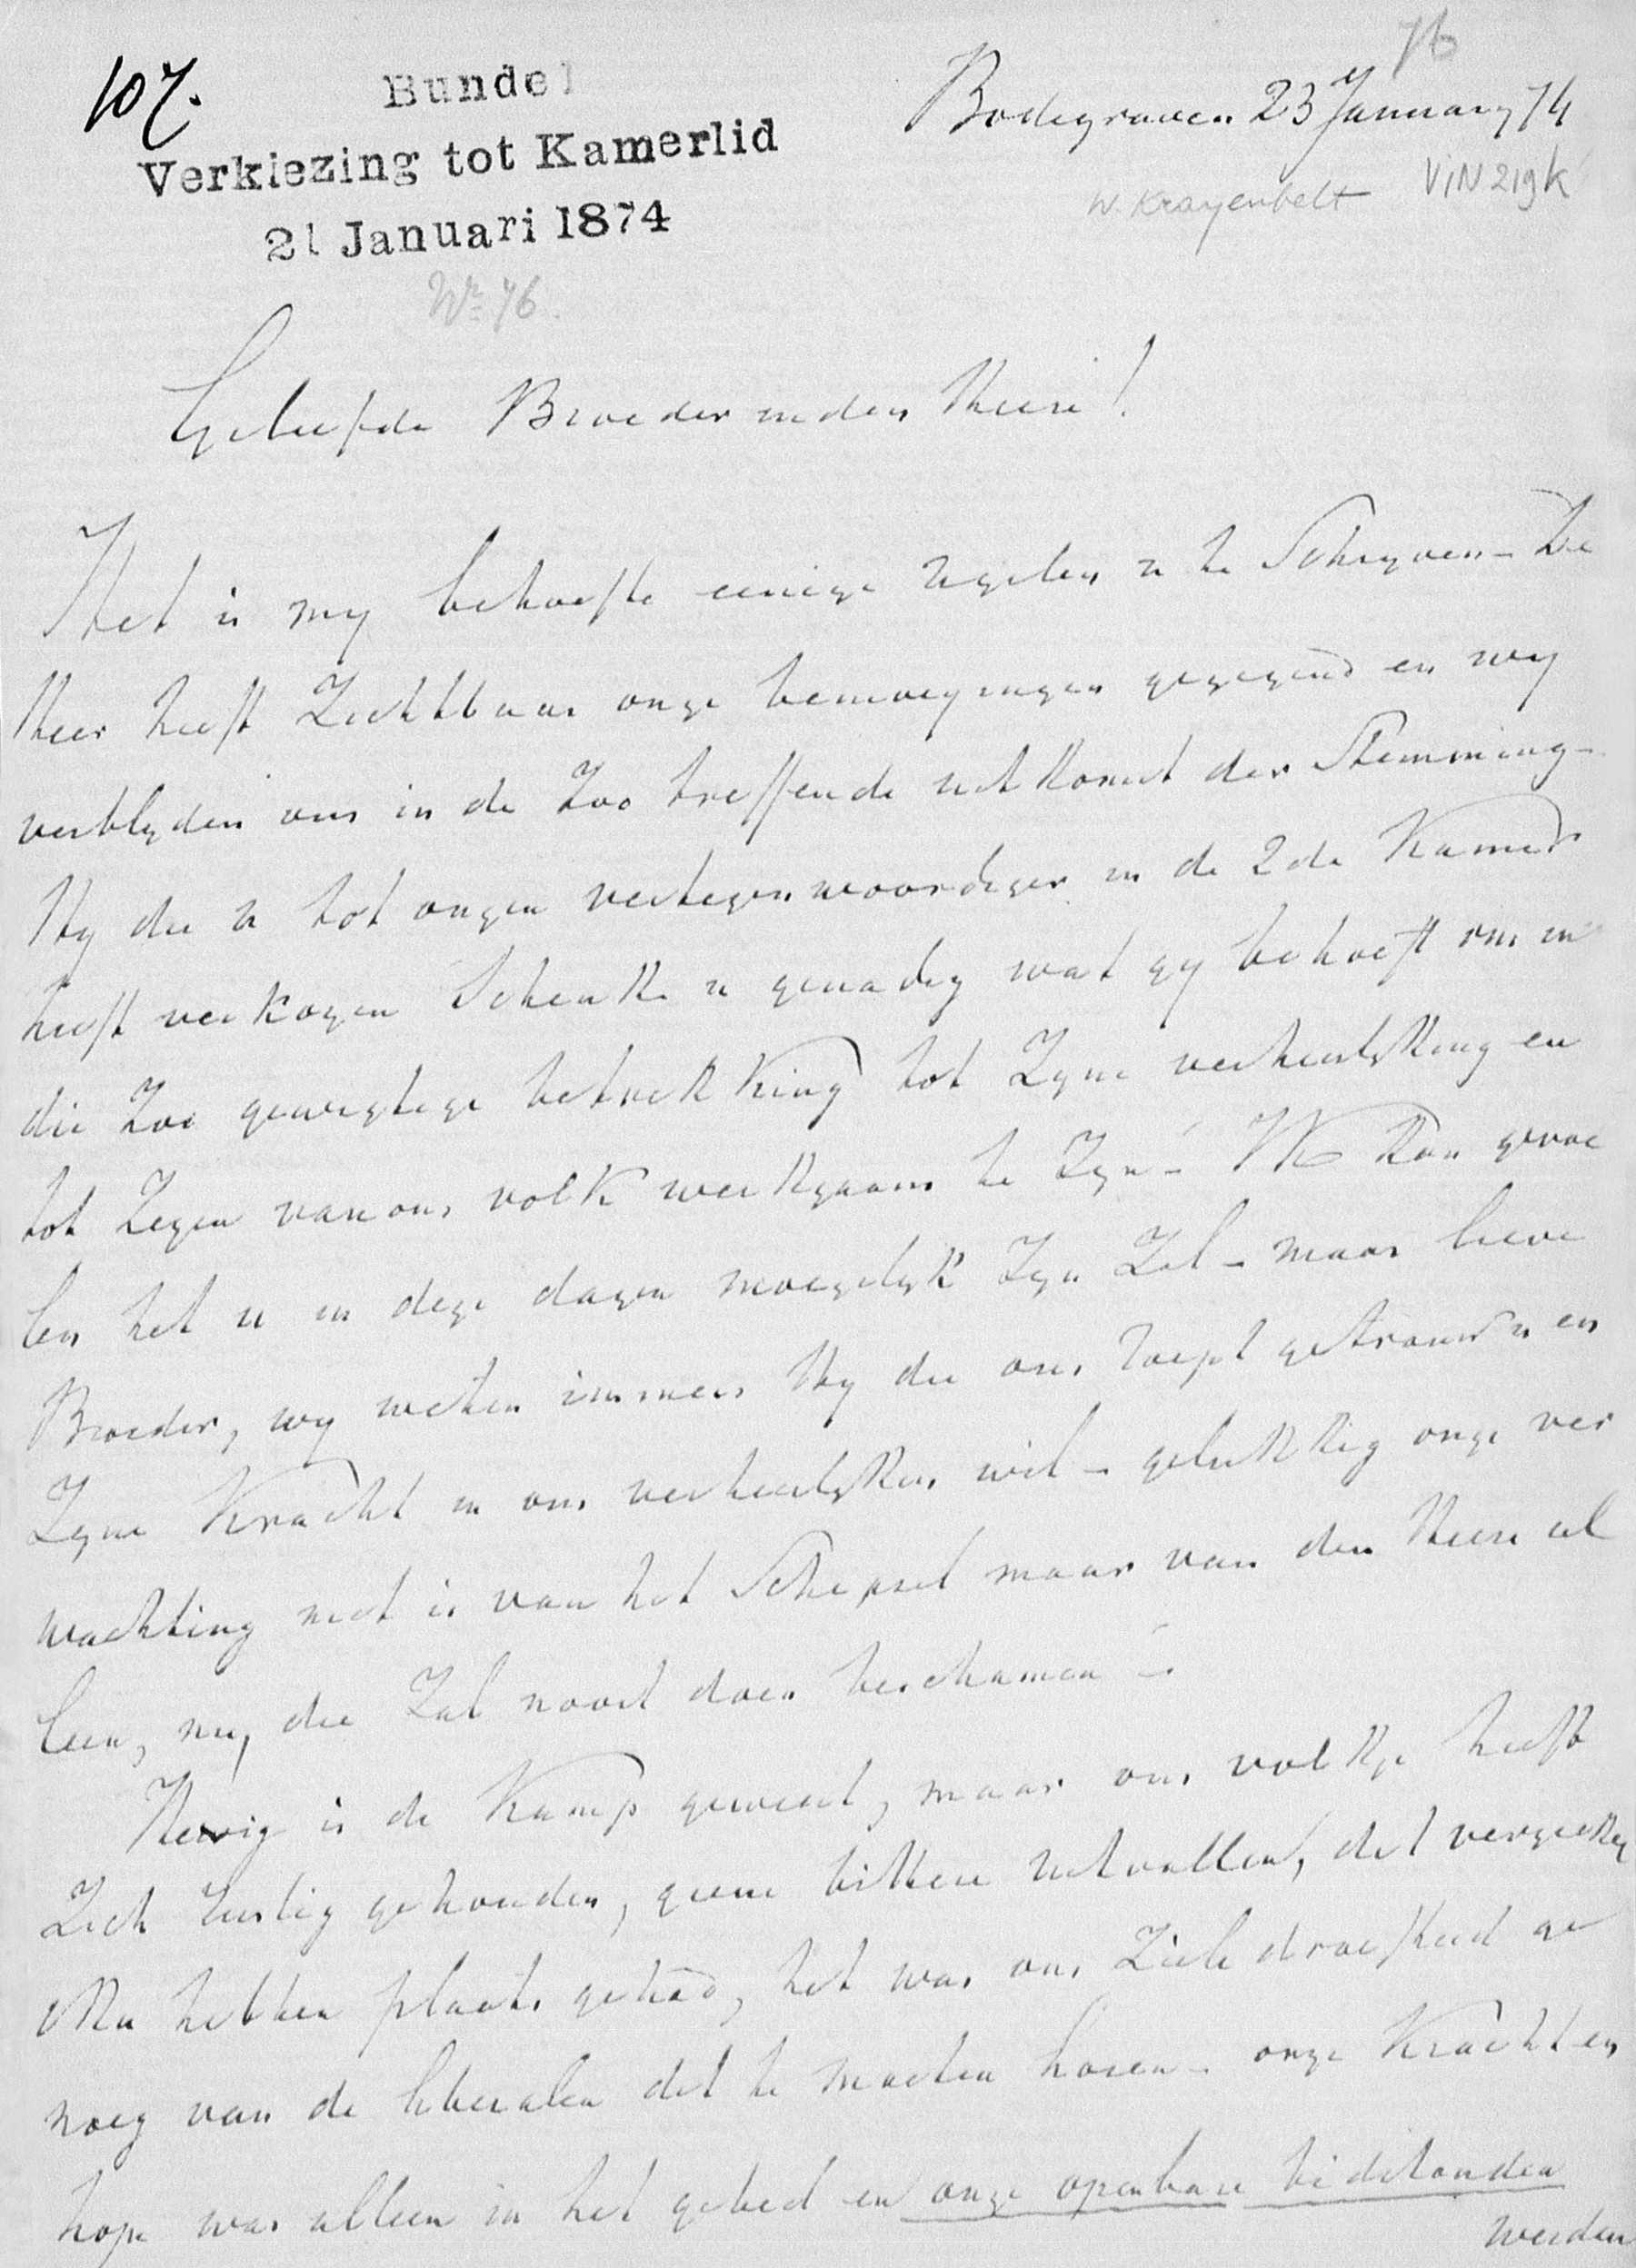 76
107.
Bundel
Verkiezing tot Kamerlid
21 Januari 1874
No 76.
Bodegraven 23 January 74
W. Krayenbelt VIN 219k
Geliefde Broeder in den Heere!
Het is my behoefte eenige regelen u te Schryven - De
Heer heeft Zichtbaar onze bemoeyingen gezegend en wy
verblyden ons in de Zoo treffende uitkomst der Stemming -
Hy die u tot onzen vertegenwoordiger in de 2de Kamer
heeft verkozen Schenke u genadig wat gy behoeft om in
die Zoo gewigtige betrekking tot Zyne verheerlyking en
tot Zegen van ons volk werkzaam te Zyn - Ik kan gevoe
len het u in deze dagen moeyelyk Zyn Zal - maar lieve
Broeder, wy weten immers Hy die ons roept getrouw is en
Zyne Kracht in ons verheerlyken wil - gelukkig onze ver
wachting niet is van het Schepsel maar van den Heere al
leen, nu, die Zal nooit doen beschamen -
Hevig is de Kamp geweest, maar ons volkje heeft
Zich rustig gehouden, geene bittere uitvallen, dit vergelyk
hebben plaats gehad, het was ons Ziele droefheid ge
noeg van de liberalen dit te moeten hooren - onze Kracht en
hope was alleen in het gebed en onze openbare bidstonden
werden